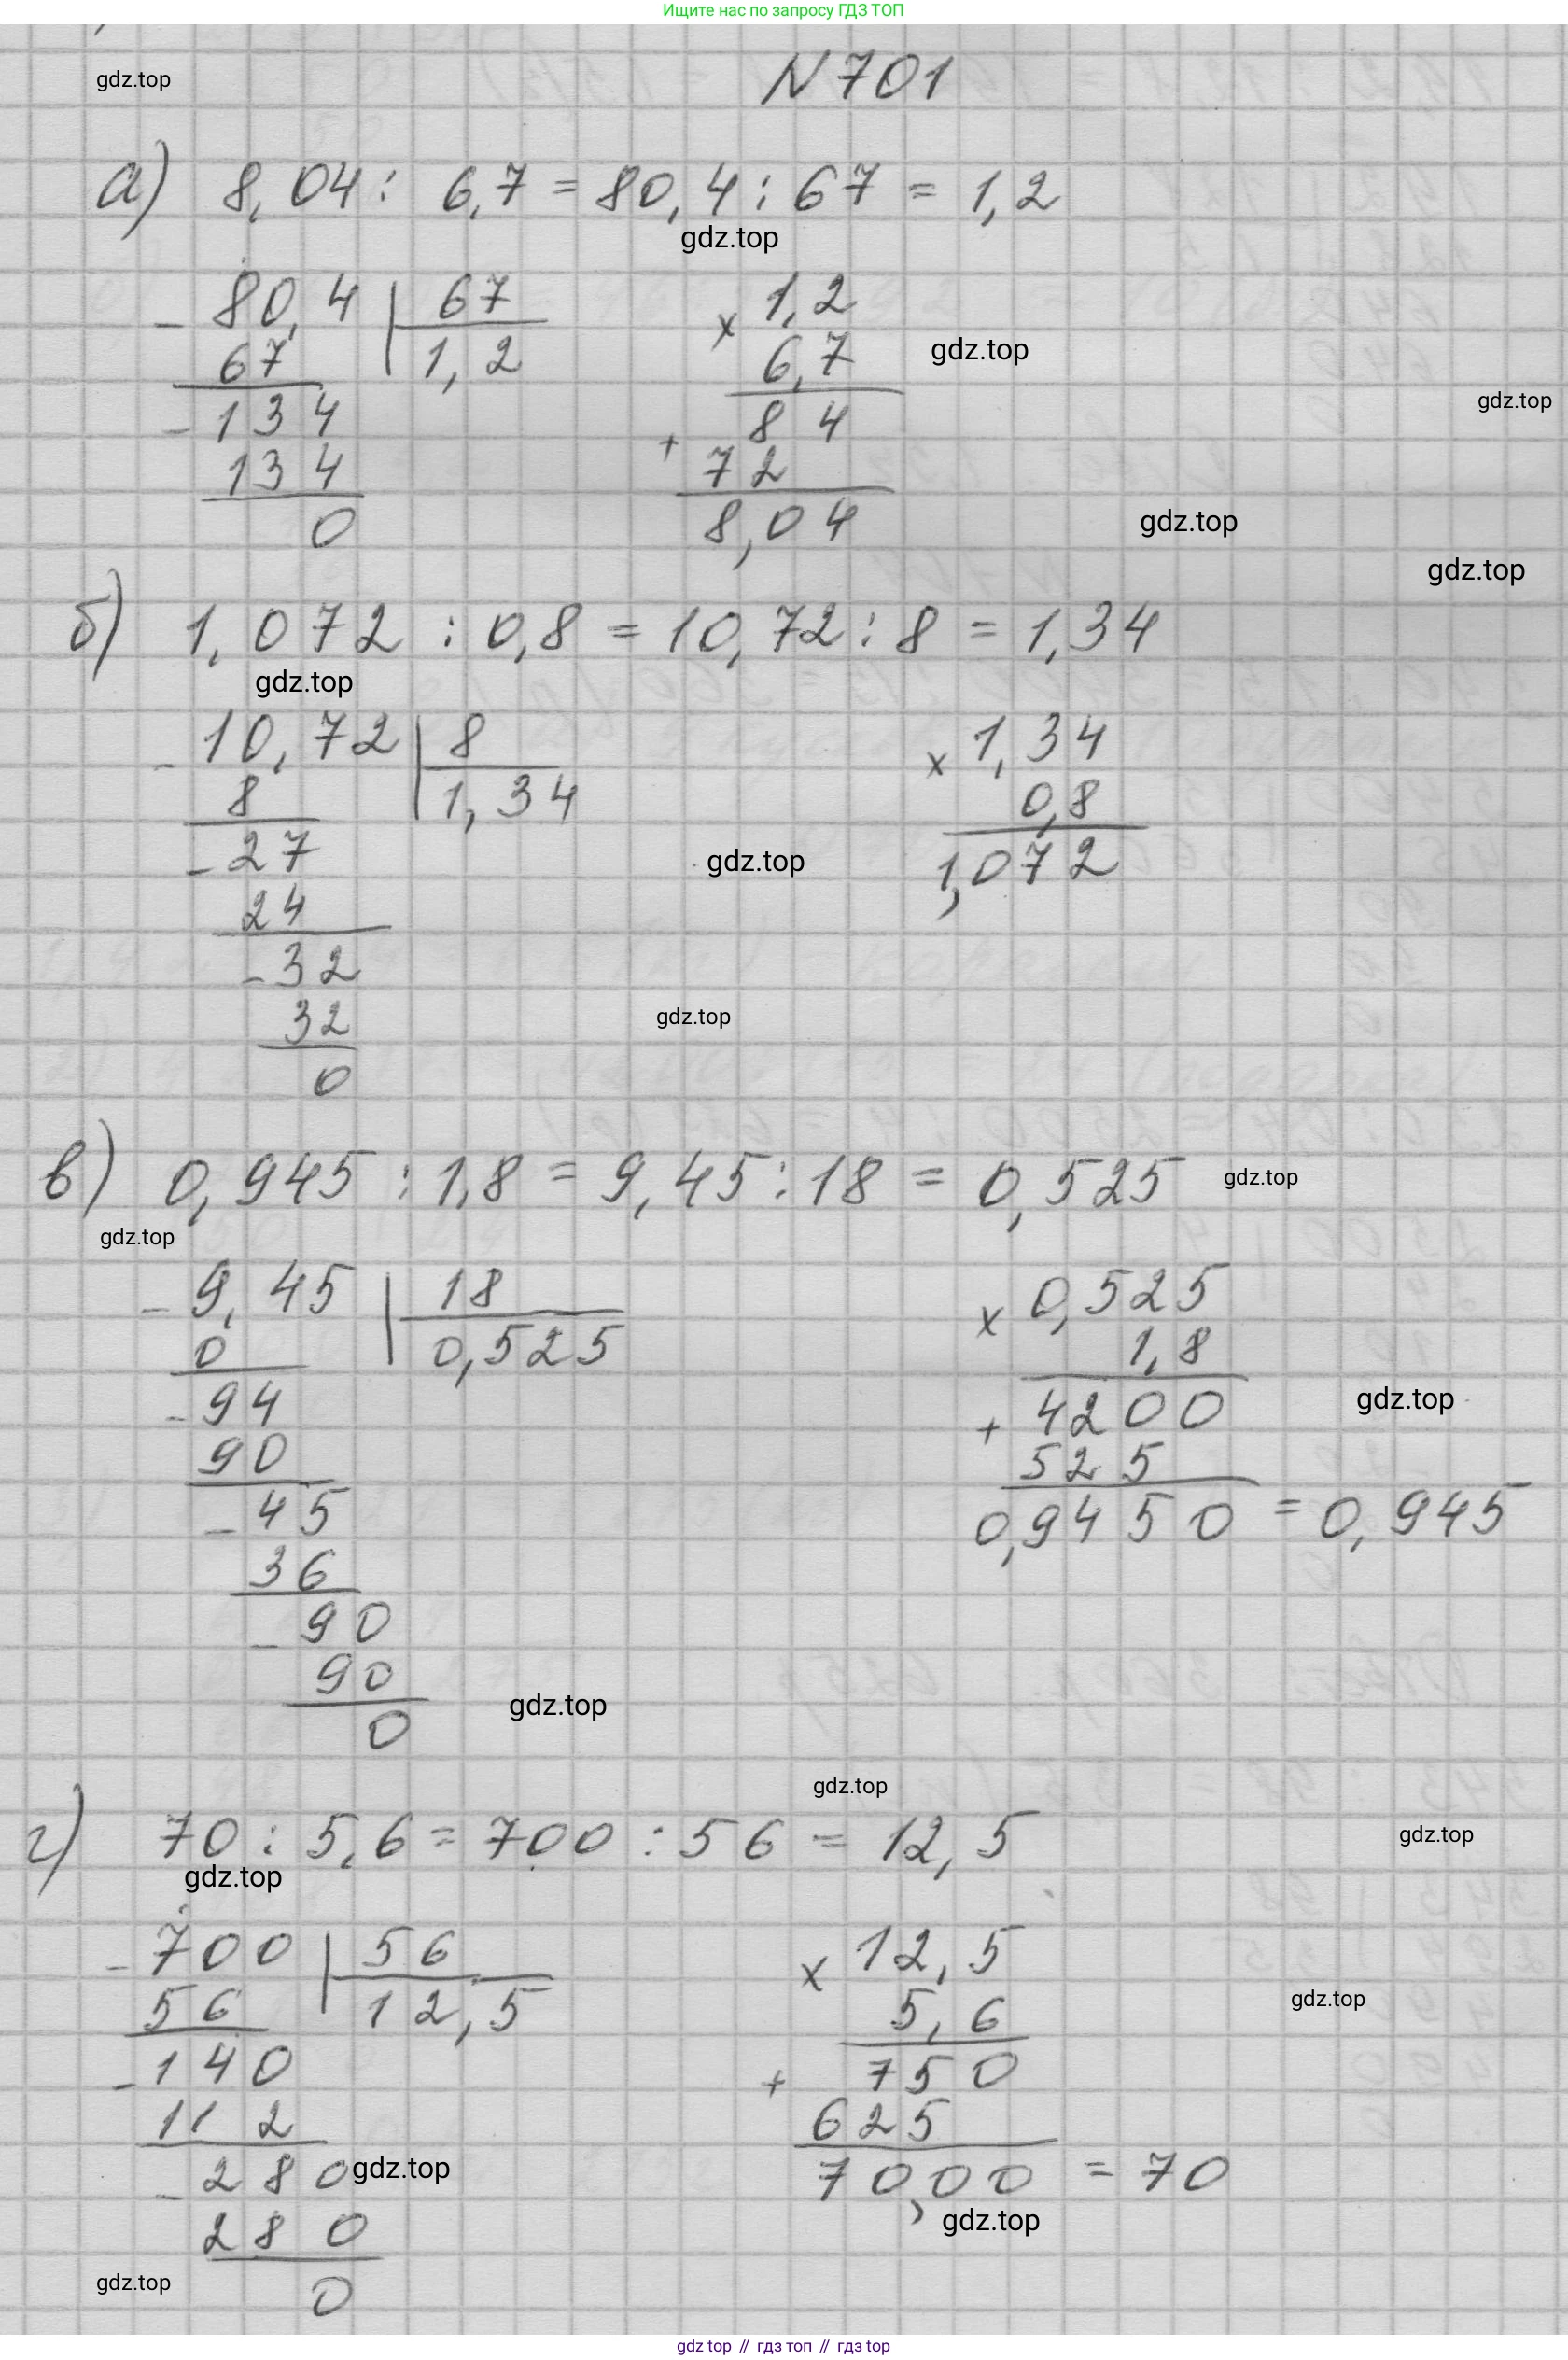 Ищите нас по запросу ГДЗ ТОП
gdz.top
N 701
а) 8,04 : 6,7 = 80,4 : 67 = 1,2
gdz.top
- 80,4 | 67
67 | 1,2
- 134
134
0
× 1,2
6,7
+ 84
72
8,04
gdz.top
gdz.top
gdz.top
gdz.top
б) 1,072 : 0,8 = 10,72 : 8 = 1,34
gdz.top
- 10,72 | 8
8 | 1,34
- 27
24
- 32
32
0
× 1,34
0,8
1,072
gdz.top
gdz.top
в) 0,945 : 1,8 = 9,45 : 18 = 0,525
gdz.top
gdz.top
- 9,45 | 18
0 | 0,525
- 94
90
- 45
36
- 90
90
0
× 0,525
1,8
+ 4200
525
0,9450 = 0,945
gdz.top
gdz.top
gdz.top
г) 70 : 5,6 = 700 : 56 = 12,5
gdz.top
gdz.top
- 700 | 56
56 | 12,5
- 140
112
- 280
280
0
× 12,5
5,6
+ 750
625
70,00 = 70
gdz.top
gdz.top
gdz.top
gdz.top
gdz top // гдз топ // гдз top